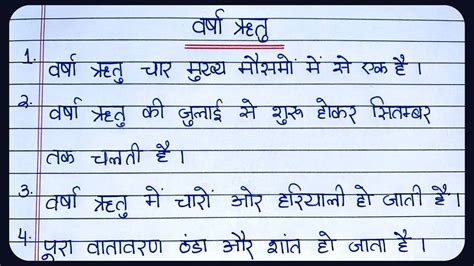 वर्षा ऋतु
1. वर्षा ऋतु चार मुख्य मौसमों में से एक है।
2. वर्षा ऋतु की जुलाई से शुरू होकर सितम्बर
तक चलती है।
3. वर्षा ऋतु में चारों ओर हरियाली हो जाती है।
4. पूरा वातावरण ठंडा और शांत हो जाता है।